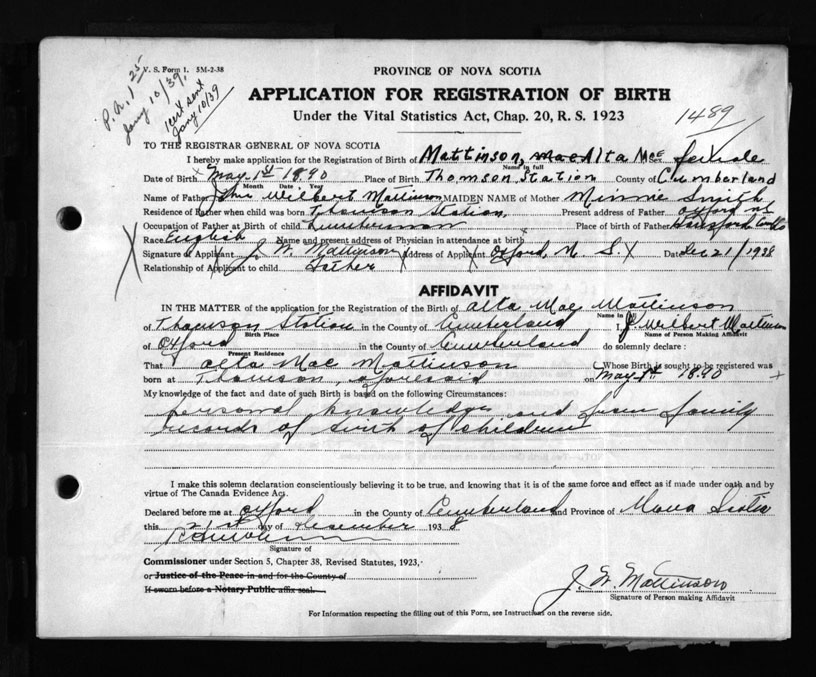 V. S. Form 1. 5M-2-38
P.A. 1 25
Jany 10/39.
cert sent
Jany 10/39
PROVINCE OF NOVA SCOTIA
APPLICATION FOR REGISTRATION OF BIRTH
Under the Vital Statistics Act, Chap. 20, R. S. 1923
1489
TO THE REGISTRAR GENERAL OF NOVA SCOTIA
I hereby make application for the Registration of Birth of Mattinson, Alta Mae Sex female
Name in full
Date of Birth May 1st 1890 Place of Birth Thomson Station County of Cumberland
Month Date Year
Name of Father John Wilbert Mattinson MAIDEN NAME of Mother Minnie Smith
Residence of Father when child was born Thomson Station, Present address of Father Oxford N.S.
Occupation of Father at Birth of child Lumberman Place of birth of Father
Race English Name and present address of Physician in attendance at birth
Signature of Applicant J. W. Mattinson Address of Applicant Oxford, N. S. Date Dec 21/1938
Relationship of Applicant to child Father
AFFIDAVIT
IN THE MATTER of the application for the Registration of the Birth of Alta Mae Mattinson
Name in
of Thomson Station in the County of Cumberland I, J. Wilbert Mattinson
Birth Place Name of Person Making Affidavit
of Oxford in the County of Cumberland do solemnly declare:
Present Residence
That Alta Mae Mattinson Whose Birth is sought to be registered was
born at Thomson, aforesaid on May 1st 1890
My knowledge of the fact and date of such Birth is based on the following Circumstances:
personal knowledge and from family
records of birth of children
I make this solemn declaration conscientiously believing it to be true, and knowing that it is of the same force and effect as if made under oath and by
virtue of The Canada Evidence Act.
Declared before me at Oxford in the County of Cumberland and Province of Nova Scotia
this 21st day of December 1938
Signature of
Commissioner under Section 5, Chapter 38, Revised Statutes, 1923,
or Justice of the Peace in and for the County of
If sworn before a Notary Public affix seal.
J. W. Mattinson
Signature of Person making Affidavit
For Information respecting the filling out of this Form, see Instructions on the reverse side.